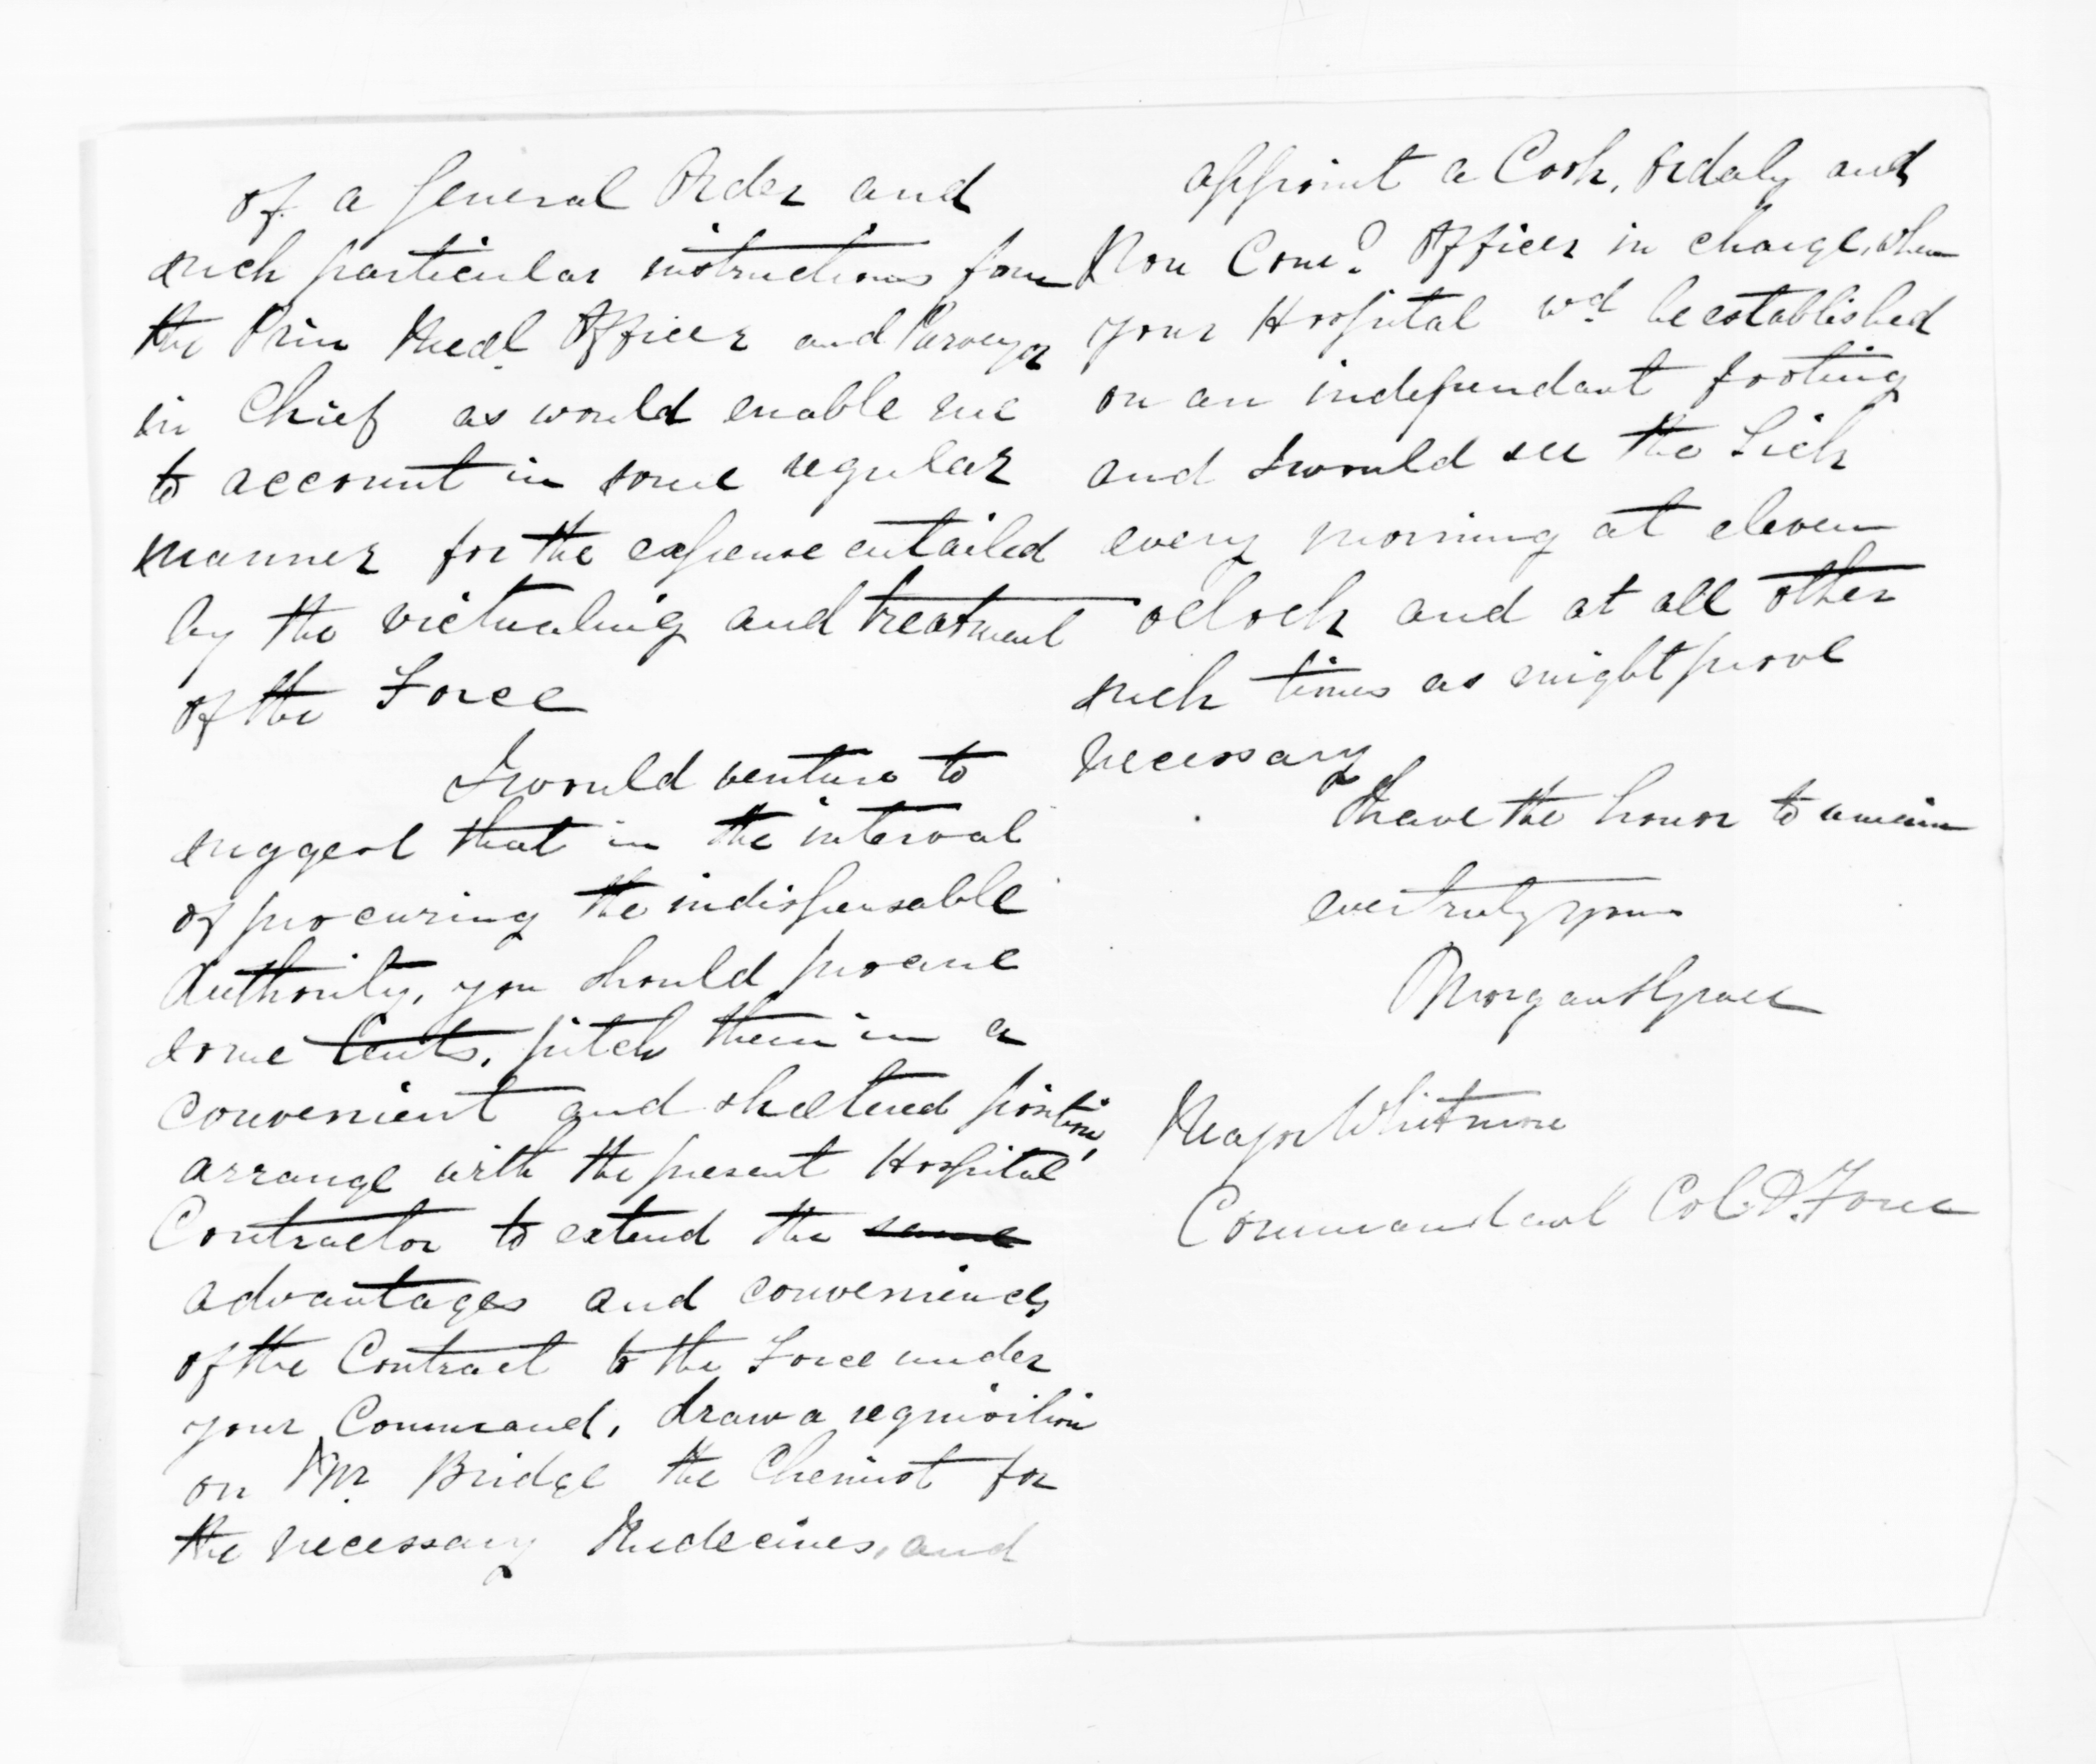 of a General Order and
such particular instructions from
the Prin Medl. Officer and Purveyor
in Chief as would enable me
to account in some regular
manner for the expense entailed
by the victualing and treatment
of the Force
I would venture to
suggest that in the interval
of procuring the indispensable
Authority, you should procure
some tents, pitch them in a
convenient and sheltered position,
arrange with the present Hospital
Contractor to extend the same
advantages and conveniences
of the Contract to the Force under
your Command, draw a requisition
on Mr. Bridge the Chemist for
the necessary Medecines, and
appoint a Cook, Ordaly and
Non Com.d Officer in charge, when
your Hospital wd. be established
on an independant footing
and I would see the Sick
every morning at eleven
oclock and at all other
such times as might prove
necessary
I have the honor to remain
ever truly yours
Morgan S Grace
Major Whitmore
Commandant Col. D. Force